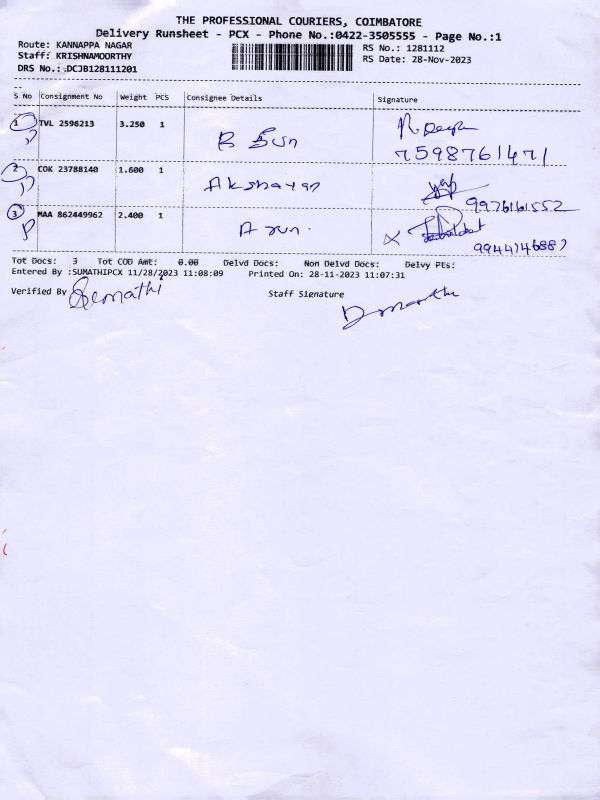 THE PROFESSIONAL COURIERS, COIMBATORE
Delivery Runsheet - PCX - Phone No.:0422-3505555 - Page No.:1
Route: KANNAPPA NAGAR RS No.: 1281112
Staff: KRISHNAMOORTHY RS Date: 28-Nov-2023
DRS No.: DCJB128111201
S No Consignment No Weight PCS Consignee Details Signature
1 TVL 2596213 3.250 1 7598761471
2 COK 23788140 1.600 1 Akshayan 9976161552
3 MAA 862449962 2.400 1 Arun.
Tot Docs: 3 Tot COD Amt: 0.00 Delvd Docs: Non Delvd Docs: Delvy Pts:
Entered By :SUMATHIPCX 11/28/2023 11:08:09 Printed On: 28-11-2023 11:07:31
Verified By Staff Signature